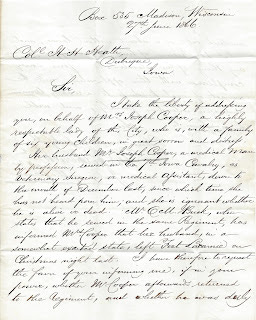 Box 535 Madison, Wisconsin
27th June 1866
Col. H H Heath
Dubuque,
Iowa
Sir,
I take the liberty of addressing
you, on behalf of Mrs Joseph Cooper, a highly
respectable lady of this City, who is, with a family
of six young children, in great sorrow and distress
Her husband Mr Joseph Cooper, a medical man
by profession, served in Iowa Cavalry, as
Veterinary Surgeon, or medical Assistant, down to
the month of December last, since which time she
has not heard from him, and she is ignorant whether
he is alive or dead. Mr who
states that he served in the same Regiment, has
informed Mrs Cooper that her husband, in a
somewhat excited state, left Fort on
Christmas night last. I have therefore to request
the favor of your informing me, if in your
power, whether Mr Cooper afterwards returned
to the Regiment, and whether he was duly